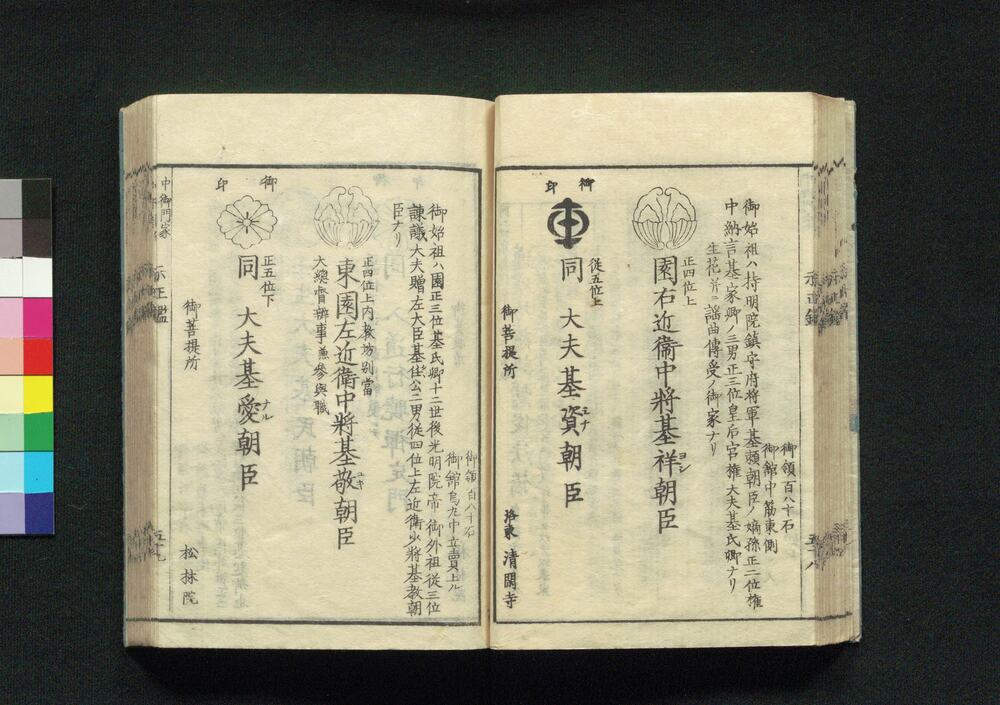 御領百八十石
御館中筋東側
御始祖ハ持明院鎮守府将軍基頼朝臣ノ嫡孫正二位権
中納言基家卿ノ三男正三位皇后宮権大夫基氏卿ナリ
生花并ニ謡曲傳受ノ御家ナリ
正四位上
園右近衞中將基祥朝臣
ヨシ
御印
従五位上
同 大夫基資朝臣
ユナ
御菩提所
洛東 清閑寺
五十八
御領百八十石
御館烏丸中立賣上ル
御始祖ハ園正三位基氏卿十二世後光明院帝御外祖従三位
諌議大夫贈左大臣基任公二男従四位上左近衛少將基教朝
臣ナリ
正四位上内教坊別當
東園左近衛中將基敬朝臣
ユキ
大總督辨事兼參與職
御印
正五位下
同 大夫基愛朝臣
ナル
御菩提所
松林院
中御門家
五十九